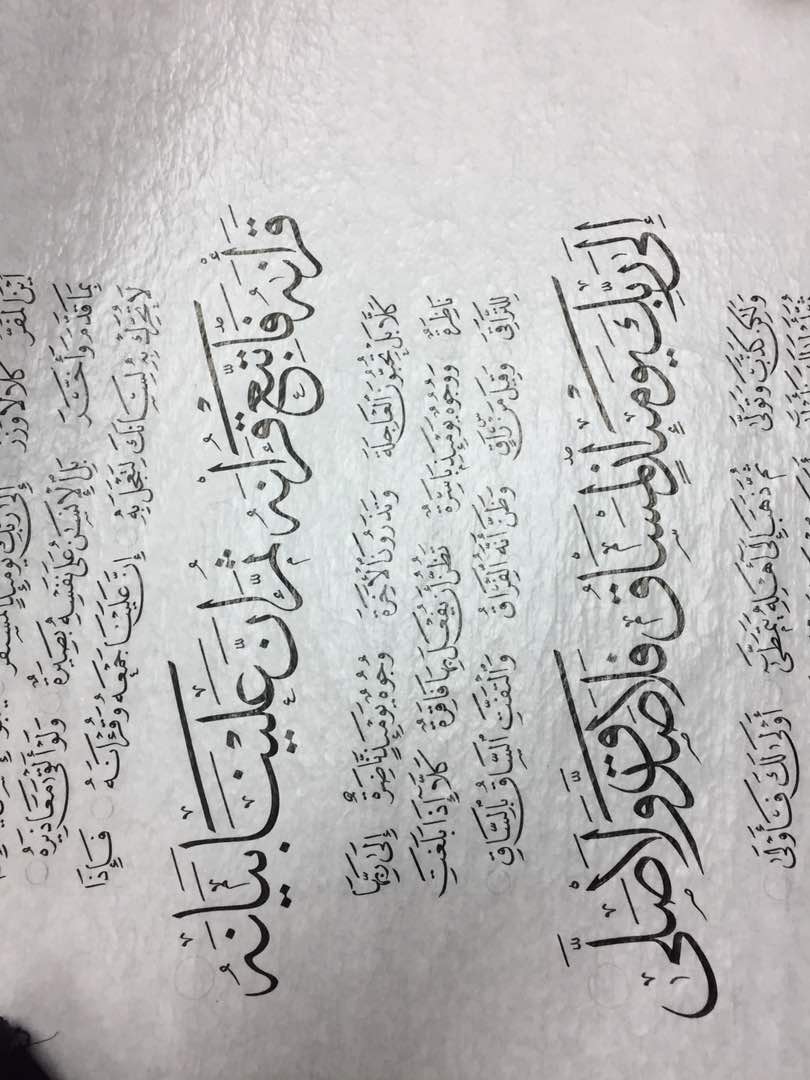 أَيْنَ الْمَفَرُّ كَلَّا لَا وَزَرَ إِلَىٰ رَبِّكَ يَوْمَئِذٍ الْمُسْتَقَرُّ
بِمَا قَدَّمَ وَأَخَّرَ بَلِ الْإِنسَٰنُ عَلَىٰ نَفْسِهِ بَصِيرَةٌ وَلَوْ أَلْقَىٰ مَعَاذِيرَهُ
لَا تُحَرِّكْ بِهِ لِسَانَكَ لِتَعْجَلَ بِهِ إِنَّ عَلَيْنَا جَمْعَهُ وَقُرْءَانَهُ فَإِذَا
قَرَأْنَٰهُ فَاتَّبِعْ قُرْءَانَهُ ثُمَّ إِنَّ عَلَيْنَا بَيَانَهُ
كَلَّا بَلْ تُحِبُّونَ الْعَاجِلَةَ وَتَذَرُونَ الْأَخِرَةَ وُجُوهٌ يَوْمَئِذٍ نَّاضِرَةٌ إِلَىٰ رَبِّهَا
نَاظِرَةٌ وَوُجُوهٌ يَوْمَئِذٍ بَاسِرَةٌ تَظُنُّ أَن يُفْعَلَ بِهَا فَاقِرَةٌ كَلَّا إِذَا بَلَغَتِ
التَّرَاقِيَ وَقِيلَ مَنْ رَاقٍ وَظَنَّ أَنَّهُ الْفِرَاقُ وَالْتَفَّتِ السَّاقُ بِالسَّاقِ
إِلَىٰ رَبِّكَ يَوْمَئِذٍ الْمَسَاقُ فَلَا صَدَّقَ وَلَا صَلَّىٰ
وَلَٰكِن كَذَّبَ وَتَوَلَّىٰ ثُمَّ ذَهَبَ إِلَىٰ أَهْلِهِ يَتَمَطَّىٰ أَوْلَىٰ لَكَ فَأَوْلَىٰ